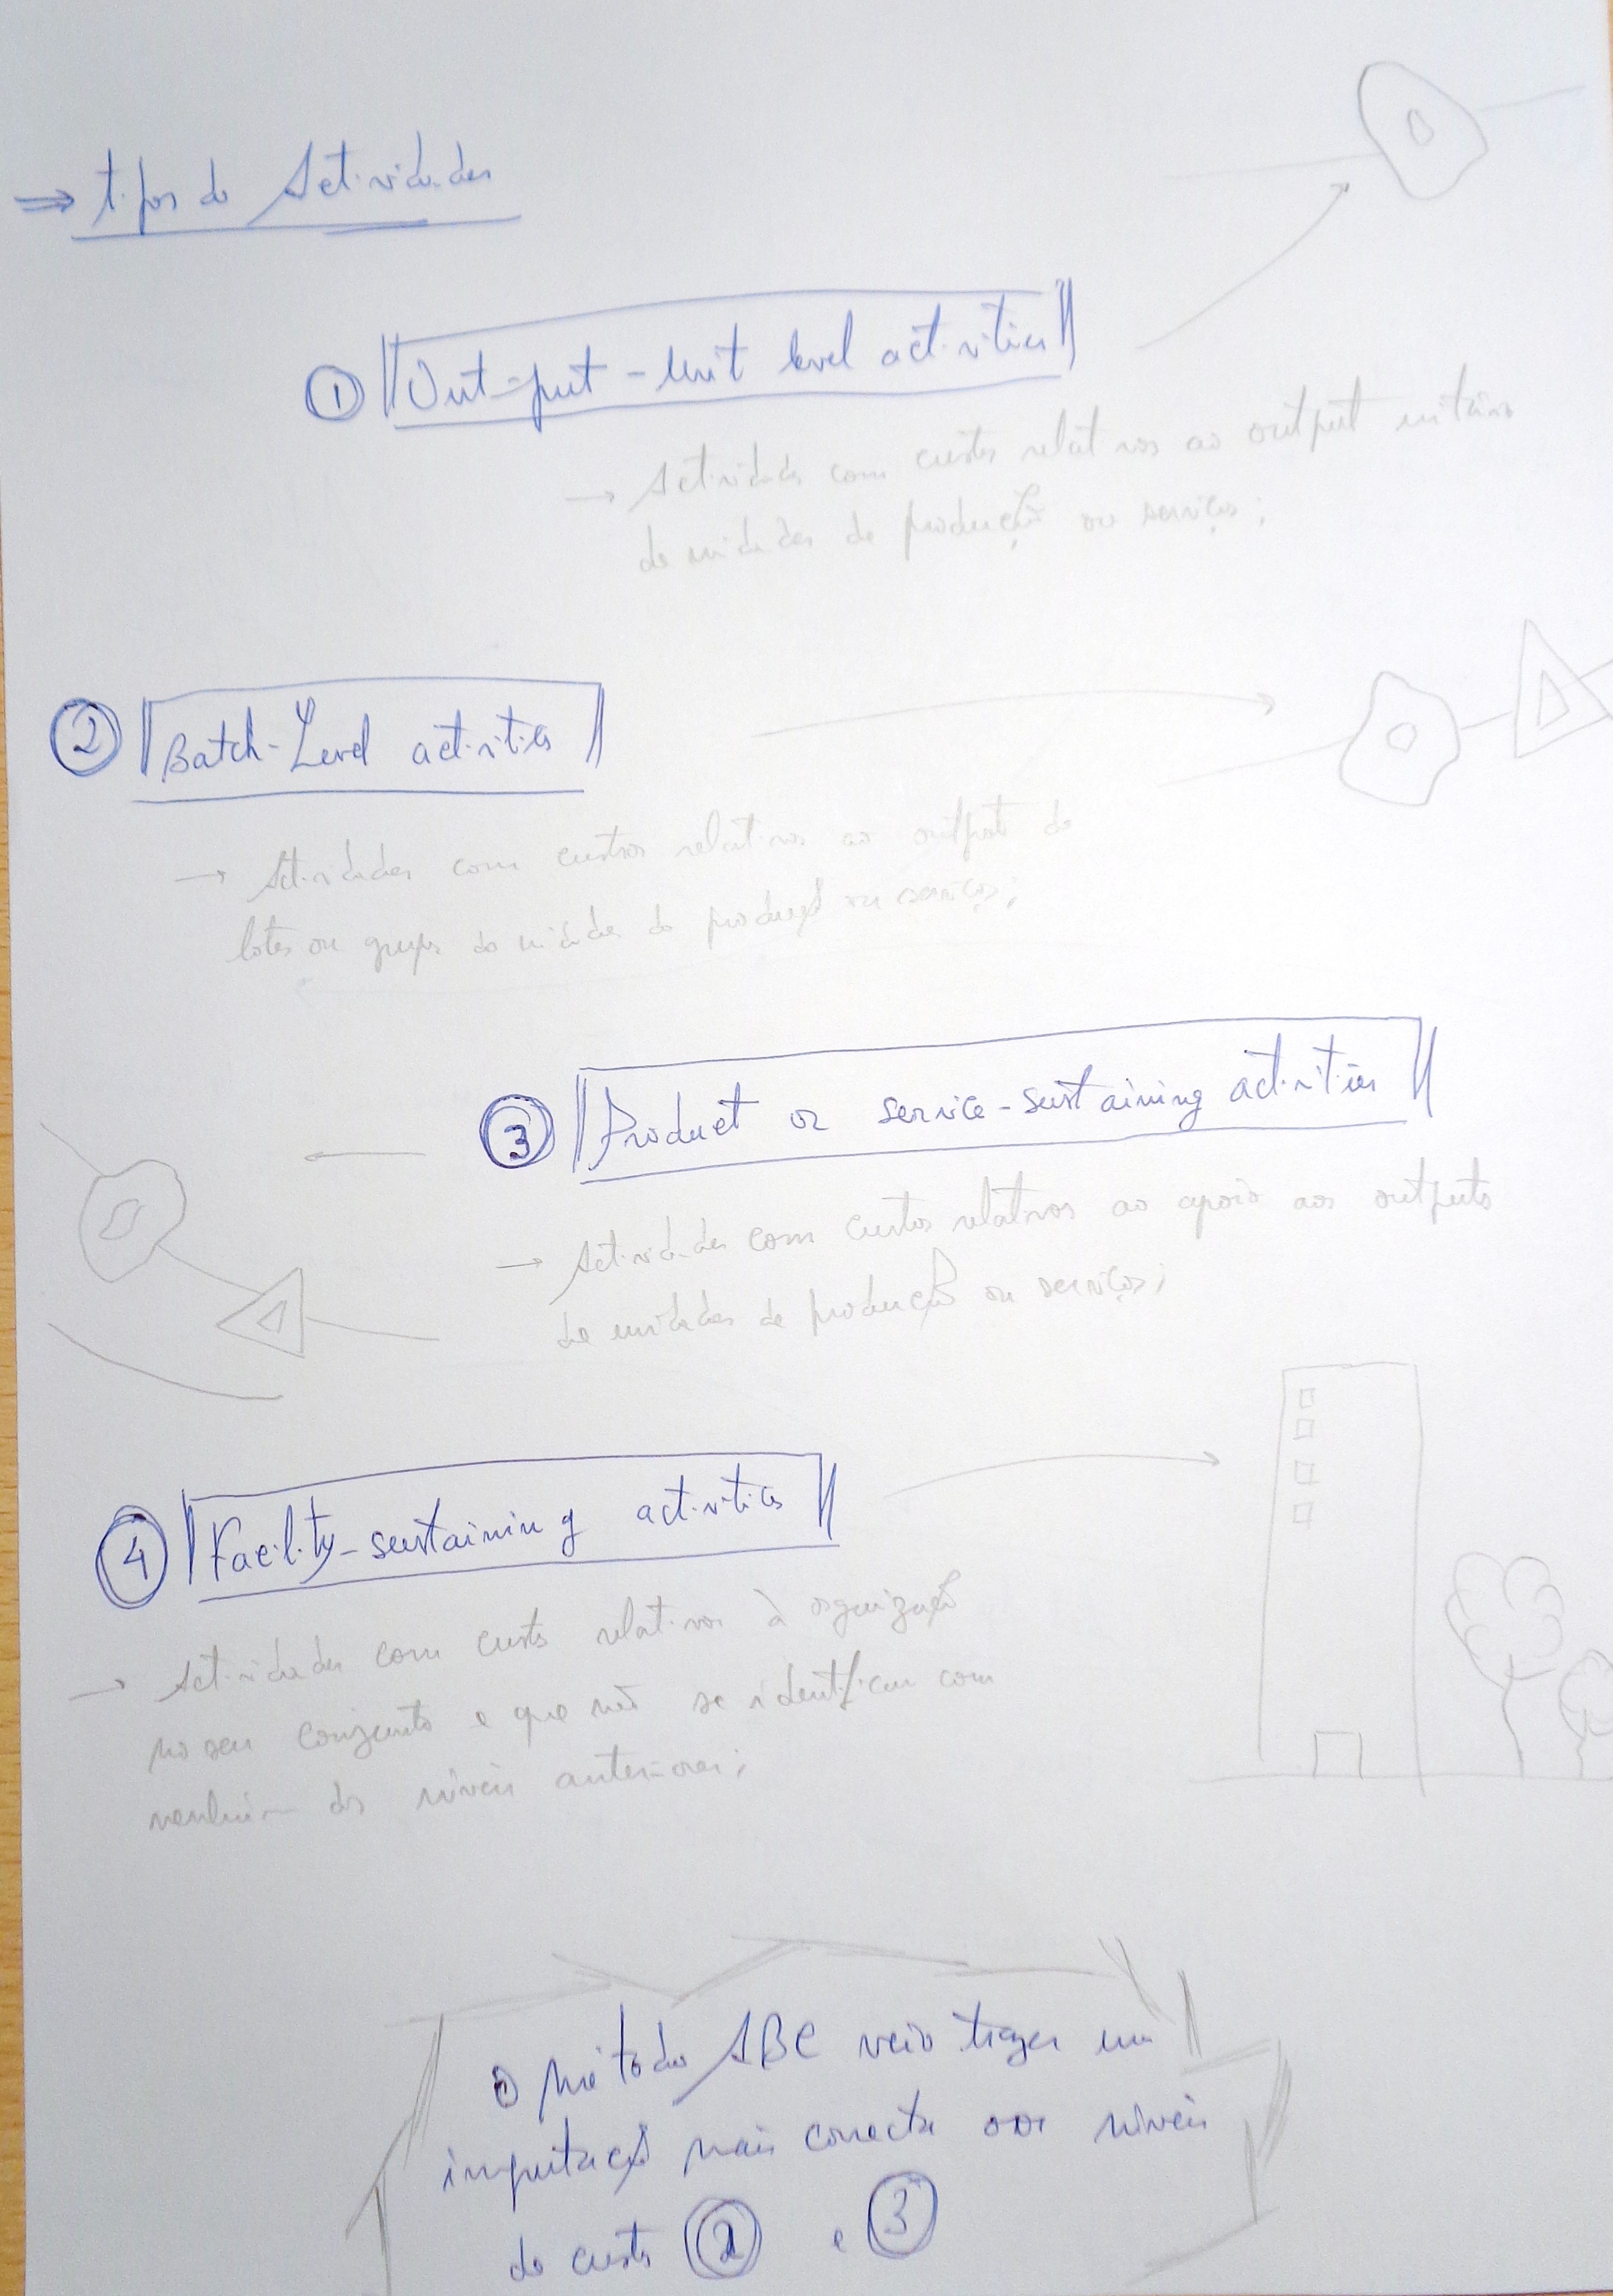 ⇒ tipos de Actividades
① Out-put-Unit level activities
→ Actividades com custos relativos ao output unitário
de unidades de produção ou serviços;
② Batch-Level activities
→ Actividades com custos relativos ao output de
lotes ou grupos de unidades de produção ou serviços;
③ Product or service-sustaining activities
→ Actividades com custos relativos ao apoio aos outputs
de unidades de produção ou serviços;
④ Facility-sustaining activities
→ Actividades com custos relativos à organização
no seu conjunto e que não se identificam com
nenhum dos níveis anteriores;
O método ABC veio trazer um
imputação mais correcta aos níveis
de custo ② e ③